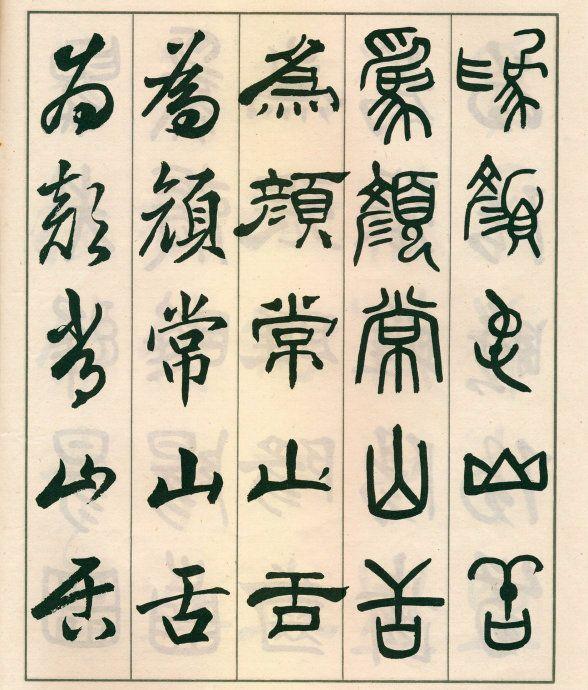 爲顏常山舌
爲顏常山舌
為顔常山舌
為顔常山舌
為顔常山舌